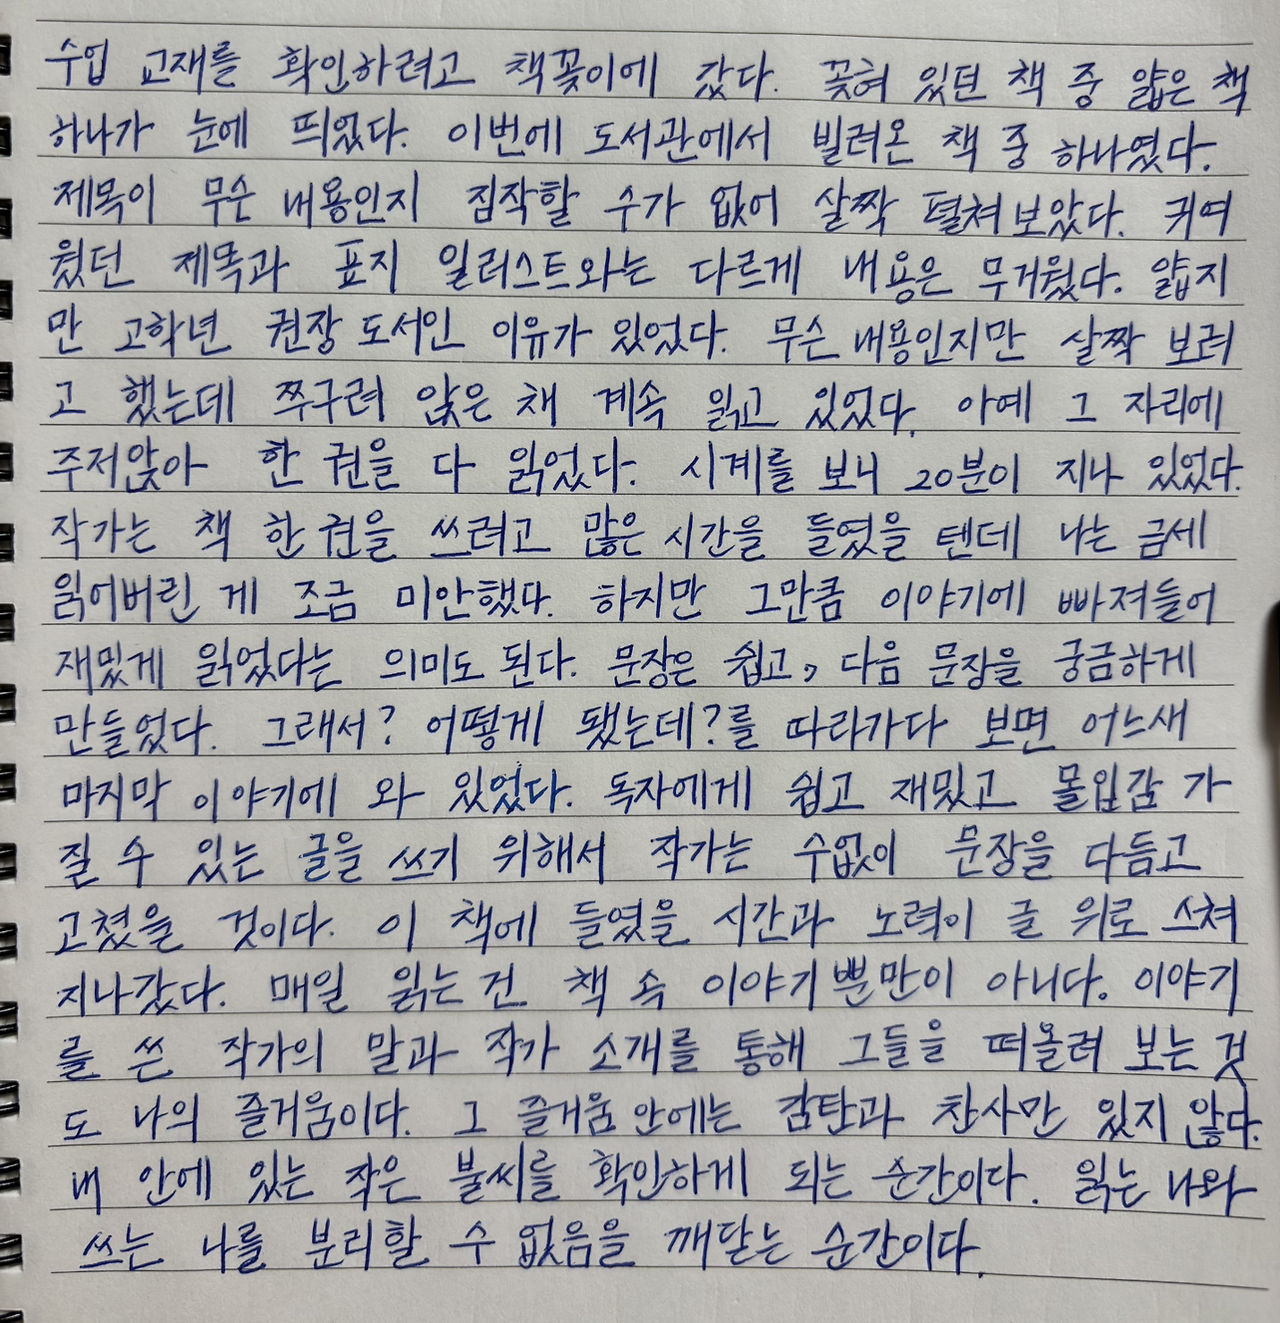 수업 교재를 확인하려고 책꽂이에 갔다. 꽂혀 있던 책 중 얇은 책
하나가 눈에 띄었다. 이번에 도서관에서 빌려온 책 중 하나였다.
제목이 무슨 내용인지 짐작할 수가 없어 살짝 펼쳐보았다. 귀여
웠던 제목과 표지 일러스트와는 다르게 내용은 무거웠다. 얇지
만 고학년 권장도서인 이유가 있었다. 무슨 내용인지만 살짝 보려
고 했는데 쭈구려 앉은 채 계속 읽고 있었다. 아예 그 자리에
주저앉아 한 권을 다 읽었다. 시계를 보니 20분이 지나 있었다.
작가는 책 한 권을 쓰려고 많은 시간을 들였을 텐데 나는 금세
읽어버린 게 조금 미안했다. 하지만 그만큼 이야기에 빠져들어
재밌게 읽었다는 의미도 된다. 문장은 쉽고, 다음 문장을 궁금하게
만들었다. 그래서? 어떻게 됐는데?를 따라가다 보면 어느새
마지막 이야기에 와 있었다. 독자에게 쉽고 재밌고 몰입감 가
질 수 있는 글을 쓰기 위해서 작가는 수없이 문장을 다듬고
고쳤을 것이다. 이 책에 들였을 시간과 노력이 글 위로 스쳐
지나갔다. 매일 읽는 건 책 속 이야기뿐만이 아니다. 이야기
를 쓴 작가의 말과 작가 소개를 통해 그들을 떠올려 보는 것
도 나의 즐거움이다. 그 즐거움 안에는 감탄과 찬사만 있지 않다.
내 안에 있는 작은 불씨를 확인하게 되는 순간이다. 읽는 나와
쓰는 나를 분리할 수 없음을 깨닫는 순간이다.